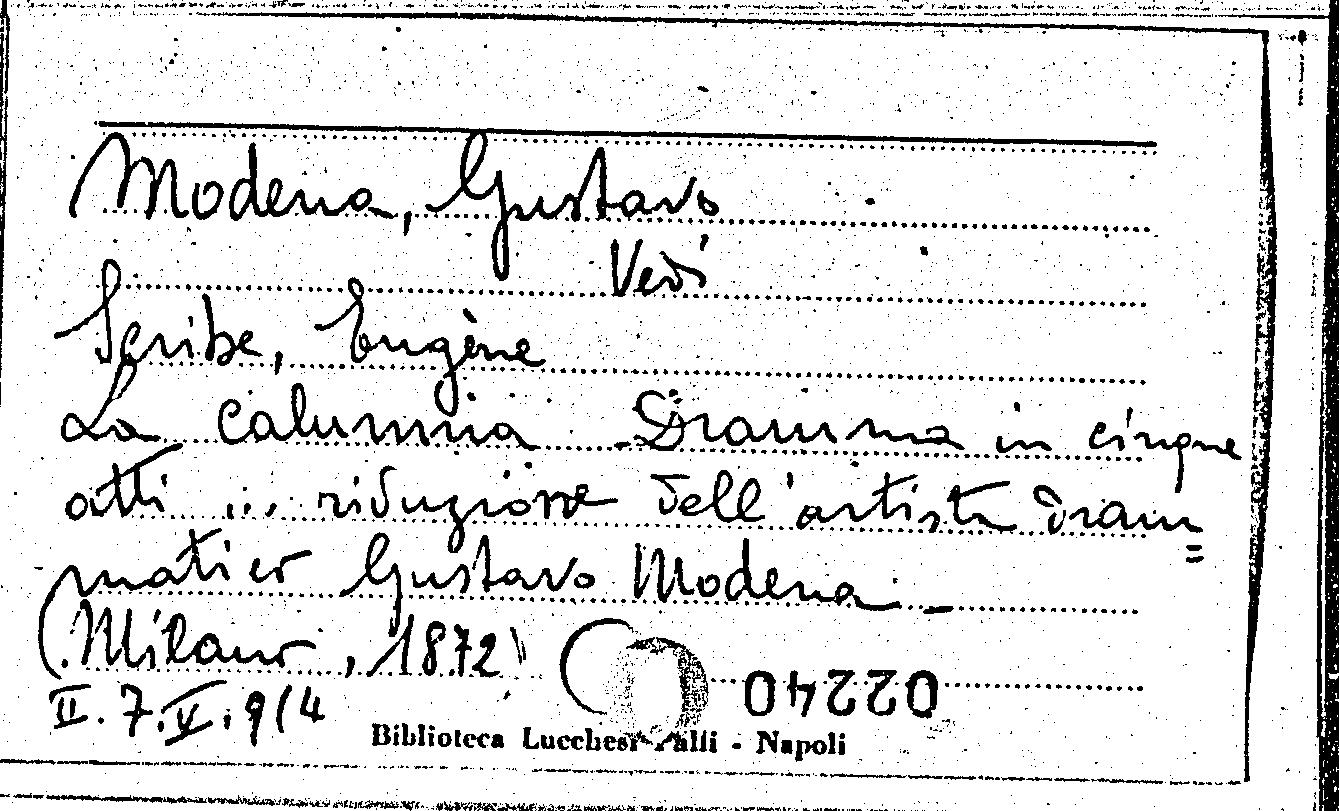 Modena, Gustavo
Vedi
Scribe, Eugène
La calunnia - Dramma in cinque
atti ... riduzione dell'artista dram=
matico Gustavo Modena -
(Milano, 1872)
02240
II.7.V.9(4
Biblioteca Lucchesi Palli - Napoli